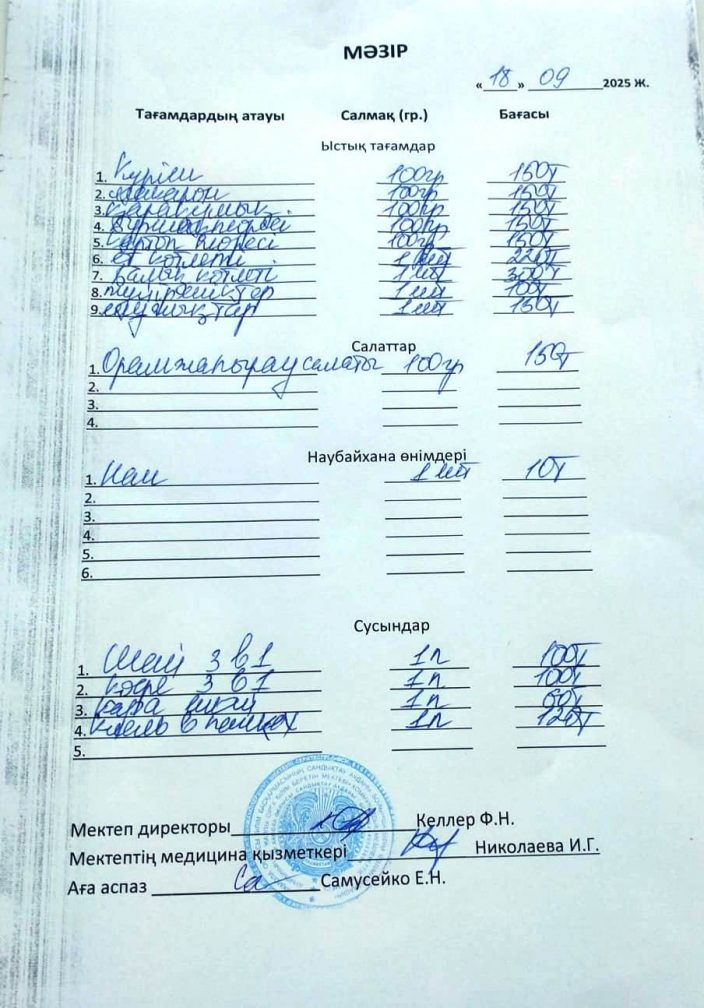 МӘЗІР
« 18 » 09 2025 Ж.
Тағамдардың атауы Салмақ (гр.) Бағасы
Ыстық тағамдар
1. Күріш 100гр 150т
2. Макарон 100гр 150т
3. Қарақұмық 100гр 150т
4. Бұршақ пюресі 100гр 150т
5. Картоп пюресі 100гр 150т
6. Ет котлеті 1 шт 220т
7. Балық котлеті 1 шт 300т
8. 1 шт 100т
9. 1 шт 150т
Салаттар
1. Орамжапырақ салаты 100гр 150т
2.
3.
4.
Наубайхана өнімдері
1. Нан 1 шт 10т
2.
3.
4.
5.
6.
Сусындар
1. Шай 3 в 1 1п 100т
2. Кофе 3 в 1 1п 100т
3. Қара шай 1п 60т
4. Кисель в пачках 1п 120т
5.
Мектеп директоры Келлер Ф.Н.
Мектептің медицина қызметкері Николаева И.Г.
Аға аспаз Самусейко Е.Н.